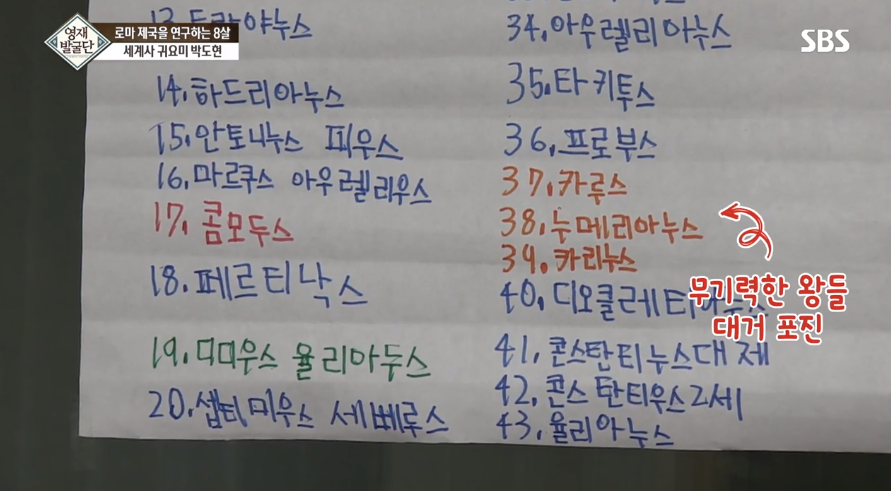 영재
발굴단
로마 제국을 연구하는 8살
세계사 귀요미 박도현
SBS
13.트라야누스
14.하드리아누스
15.안토니누스 피우스
16.마르쿠스 아우렐리우스
17.콤모두스
18.페르티낙스
19.디디우스 율리아두스
20.셉티미우스 세베루스
34.아우렐리아누스
35.타키투스
36.프로부스
37.카루스
38.누메리아누스
39.카리누스
40.디오클레티아누스
41.콘스탄티누스대제
42.콘스탄티우스2세
43.율리아누스
무기력한 왕들
대거 포진